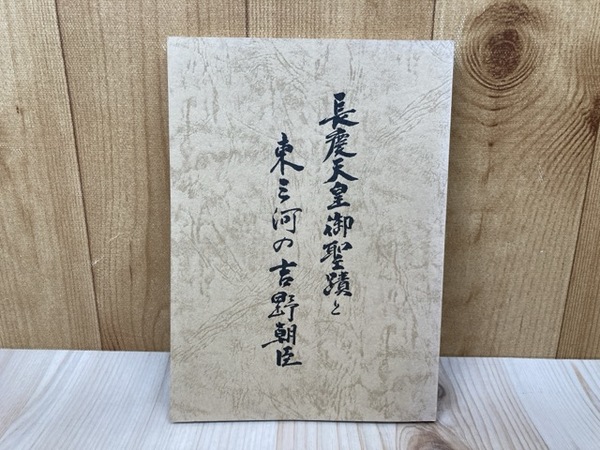 長慶天皇御聖蹟と
東三河の吉野朝臣